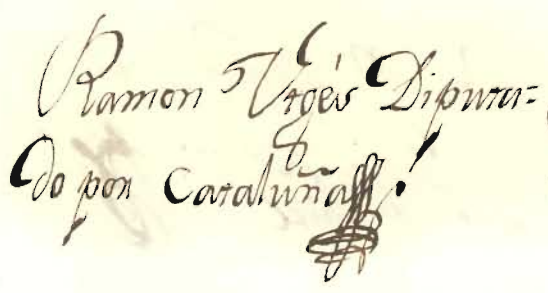 Ramon Utgés Diputa=
do por Cataluña